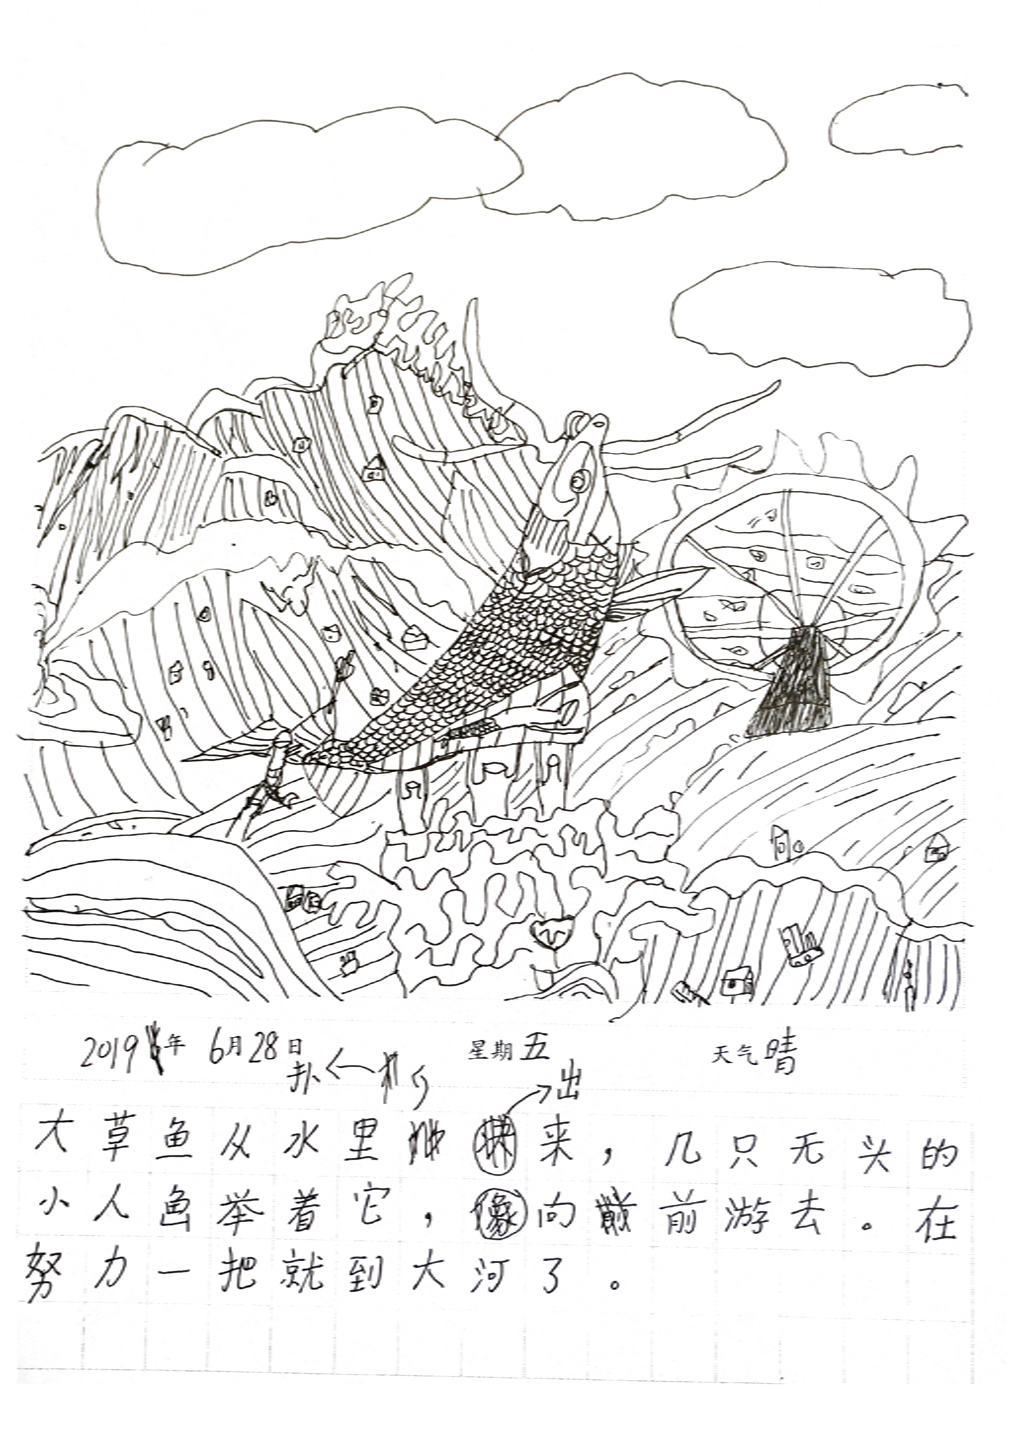 2019年 6月28日 星期五 天气晴
扑
出
大草鱼从水里来，几只无头的
小人鱼举着它，向前游去。在
努力一把就到大河了。